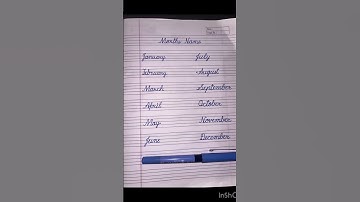 Months Name
January July
February August
March September
April October
May November
June December
InShO